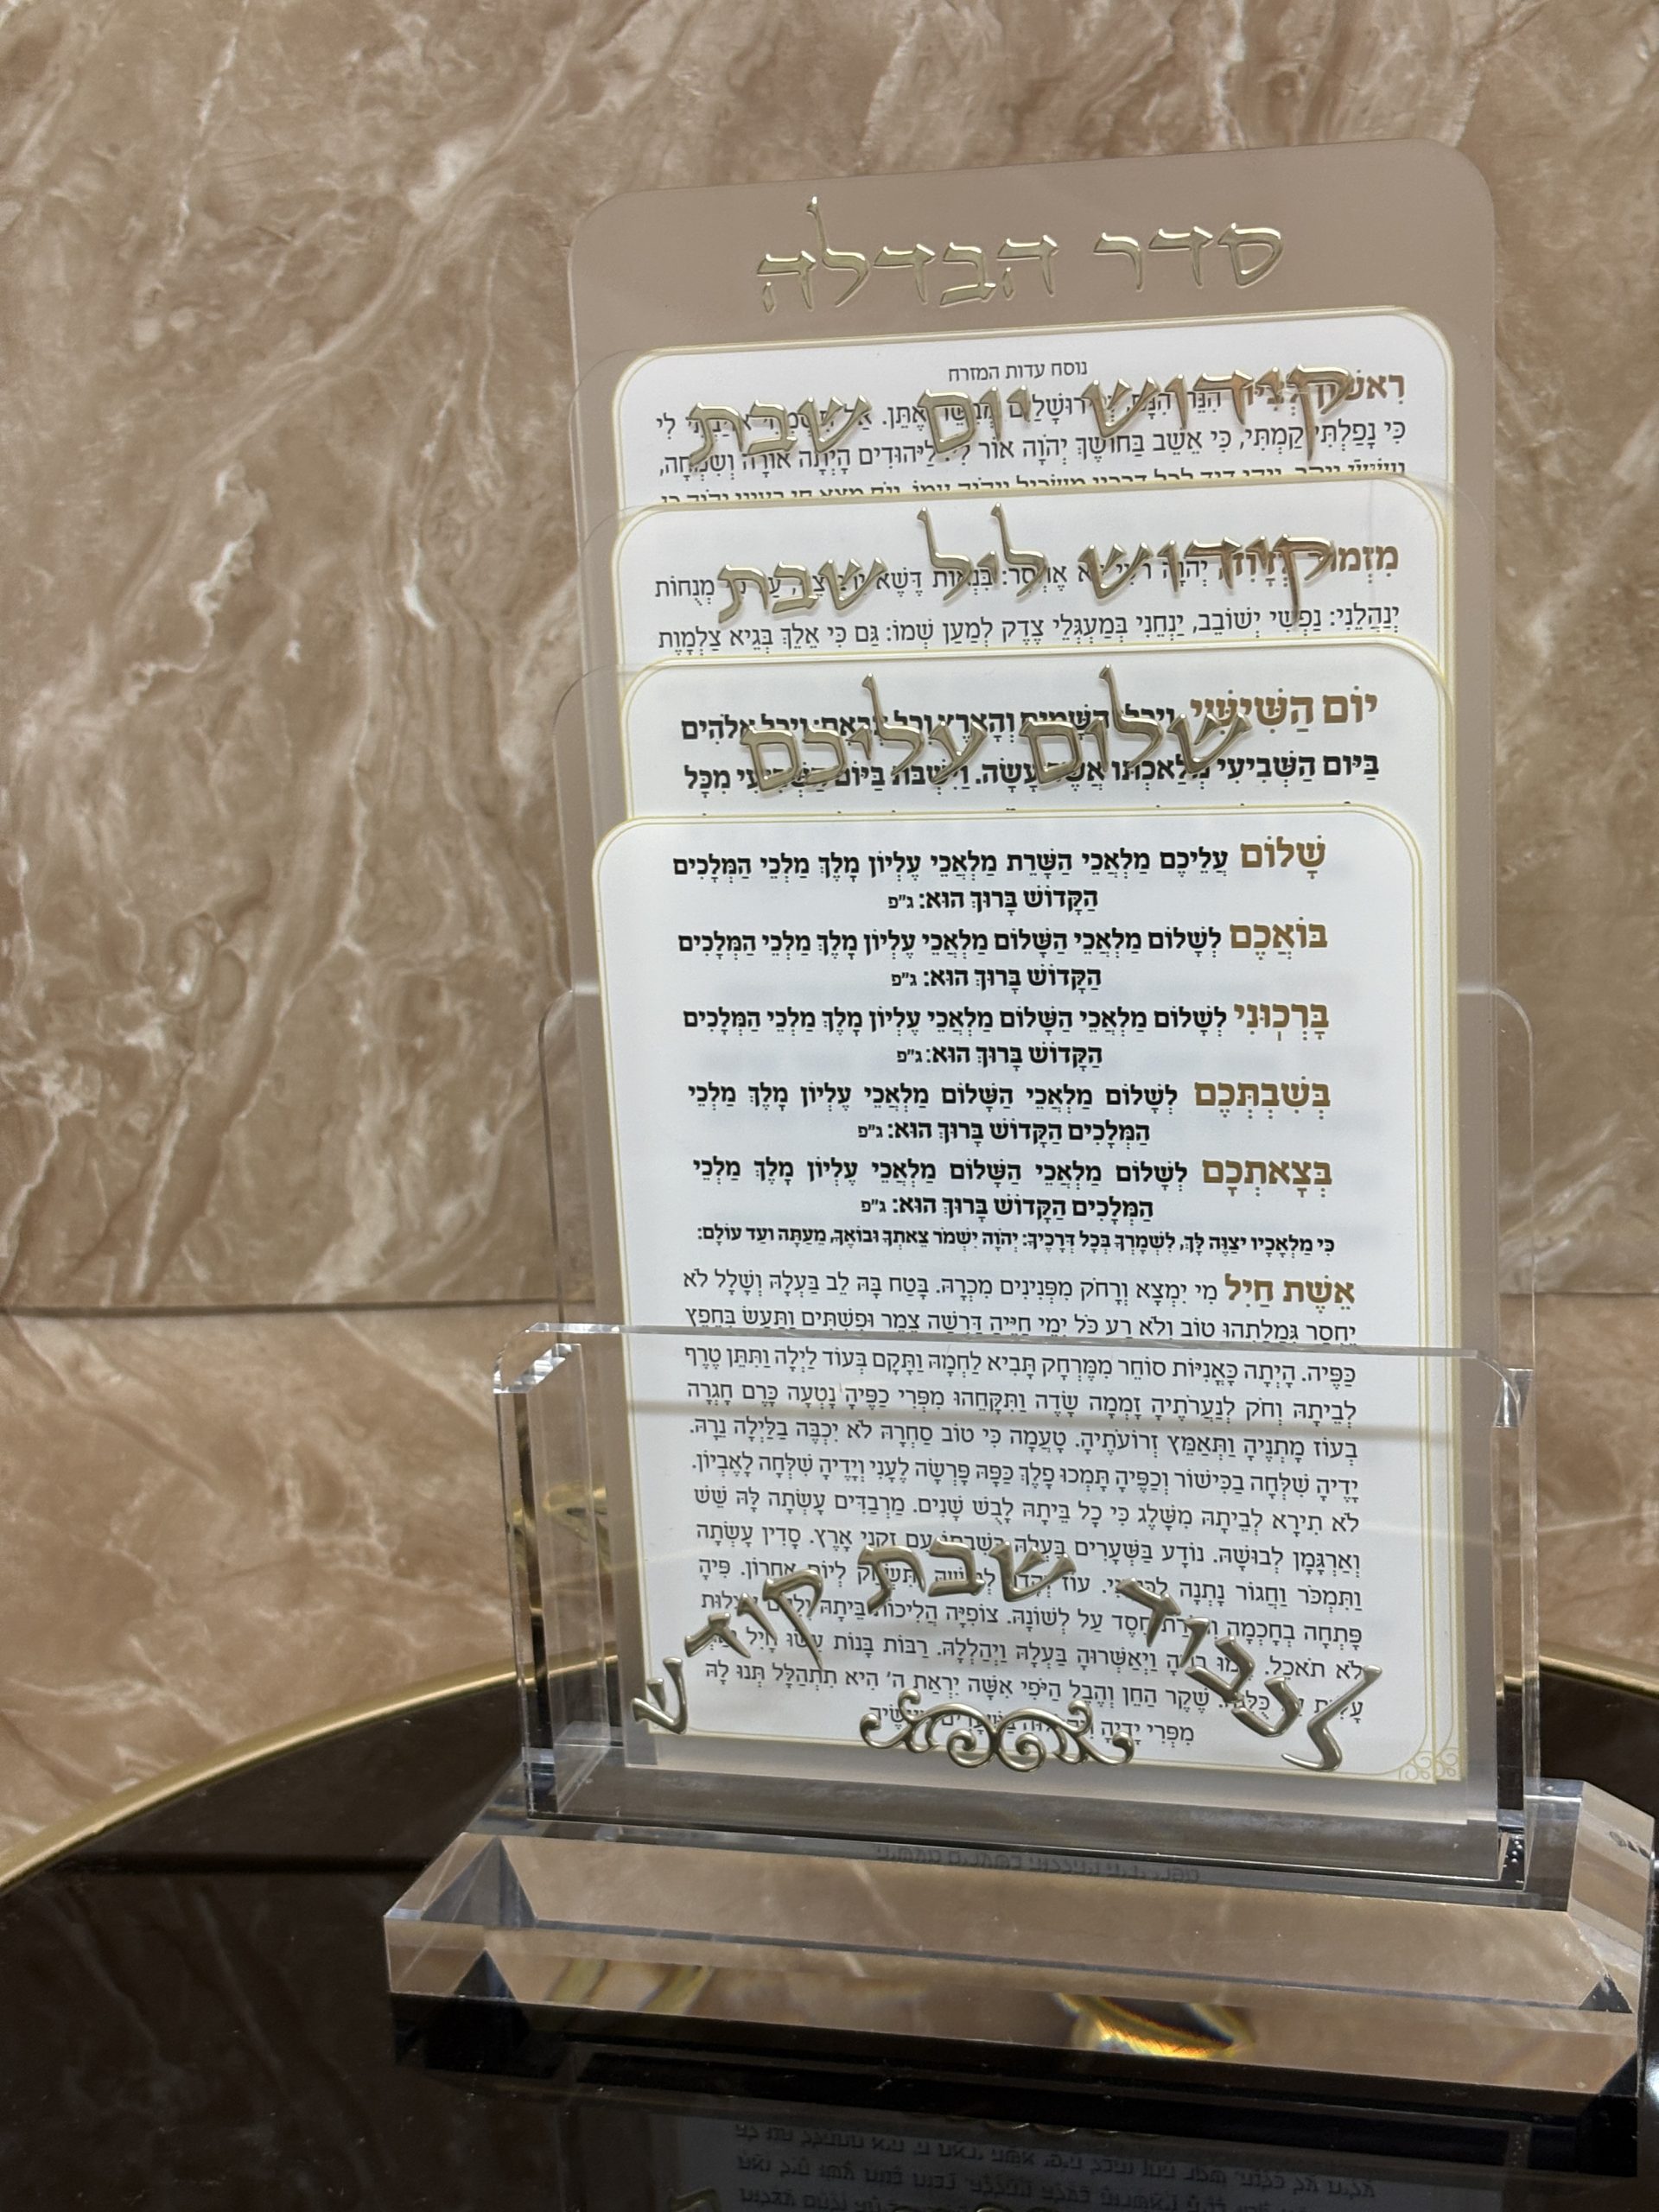 סדר הבדלה
נוסח עדות המזרח
קידוש יום שבת
רִאשׁוֹן
כִּי נָפַלְתִּי קַמְתִּי, כִּי אֵשֵׁב בַּחוֹשֶׁךְ יְהֹוָה אוֹר לִי. לַיְּהוּדִים הָיְתָה אוֹרָה וְשִׂמְחָה,
קידוש ליל שבת
מִנְחוֹת
יְנַהֲלֵנִי: נַפְשִׁי יְשׁוֹבֵב, יַנְחֵנִי בְּמַעְגְּלֵי צֶדֶק לְמַעַן שְׁמוֹ: גַּם כִּי אֵלֵךְ בְּגֵיא צַלְמָוֶת
יוֹם הַשִּׁישִׁי
שלום עליכם
בַּיּוֹם הַשְּׁבִיעִי מְלַאכְתּוֹ אֲשֶׁר עָשָׂה. וַיִּשְׁבֹּת בַּיּוֹם הַשְּׁבִיעִי מִכָּל
שָׁלוֹם עֲלֵיכֶם מַלְאֲכֵי הַשָּׁרֵת מַלְאֲכֵי עֶלְיוֹן מֶלֶךְ מַלְכֵי הַמְּלָכִים
הַקָּדוֹשׁ בָּרוּךְ הוּא: ג"פ
בּוֹאֲכֶם לְשָׁלוֹם מַלְאֲכֵי הַשָּׁלוֹם מַלְאֲכֵי עֶלְיוֹן מֶלֶךְ מַלְכֵי הַמְּלָכִים
הַקָּדוֹשׁ בָּרוּךְ הוּא: ג"פ
בָּרְכוּנִי לְשָׁלוֹם מַלְאֲכֵי הַשָּׁלוֹם מַלְאֲכֵי עֶלְיוֹן מֶלֶךְ מַלְכֵי הַמְּלָכִים
הַקָּדוֹשׁ בָּרוּךְ הוּא: ג"פ
בְּשִׁבְתְּכֶם לְשָׁלוֹם מַלְאֲכֵי הַשָּׁלוֹם מַלְאֲכֵי עֶלְיוֹן מֶלֶךְ מַלְכֵי
הַמְּלָכִים הַקָּדוֹשׁ בָּרוּךְ הוּא: ג"פ
בְּצָאתְכֶם לְשָׁלוֹם מַלְאֲכֵי הַשָּׁלוֹם מַלְאֲכֵי עֶלְיוֹן מֶלֶךְ מַלְכֵי
הַמְּלָכִים הַקָּדוֹשׁ בָּרוּךְ הוּא: ג"פ
כִּי מַלְאָכָיו יְצַוֶּה לָּךְ, לִשְׁמָרְךָ בְּכָל דְּרָכֶיךָ: יְהֹוָה יִשְׁמֹר צֵאתְךָ וּבוֹאֶךָ, מֵעַתָּה וְעַד עוֹלָם:
אֵשֶׁת חַיִל מִי יִמְצָא וְרָחֹק מִפְּנִינִים מִכְרָהּ. בָּטַח בָּהּ לֵב בַּעְלָהּ וְשָׁלָל לֹא
יֶחְסָר גְּמָלַתְהוּ טוֹב וְלֹא רָע כֹּל יְמֵי חַיֶּיהָ דָּרְשָׁה צֶמֶר וּפִשְׁתִּים וַתַּעַשׂ בְּחֵפֶץ
כַּפֶּיהָ. הָיְתָה כָּאֳנִיּוֹת סוֹחֵר מִמֶּרְחָק תָּבִיא לַחְמָהּ וַתָּקָם בְּעוֹד לַיְלָה וַתִּתֵּן טֶרֶף
לְבֵיתָהּ וְחֹק לְנַעֲרֹתֶיהָ זָמְמָה שָׂדֶה וַתִּקָּחֵהוּ מִפְּרִי כַפֶּיהָ נָטְעָה כָּרֶם חָגְרָה
בְעוֹז מָתְנֶיהָ וַתְּאַמֵּץ זְרוֹעֹתֶיהָ. טָעֲמָה כִּי טוֹב סַחְרָהּ לֹא יִכְבֶּה בַלַּיְלָה נֵרָהּ.
יָדֶיהָ שִׁלְּחָה בַכִּישׁוֹר וְכַפֶּיהָ תָּמְכוּ פָלֶךְ כַּפָּהּ פָּרְשָׂה לֶעָנִי וְיָדֶיהָ שִׁלְּחָה לָאֶבְיוֹן.
לֹא תִירָא לְבֵיתָהּ מִשָּׁלֶג כִּי כָל בֵּיתָהּ לָבֻשׁ שָׁנִים. מַרְבַדִּים עָשְׂתָה לָּהּ שֵׁשׁ
וְאַרְגָּמָן לְבוּשָׁהּ. נוֹדָע בַּשְּׁעָרִים בַּעְלָהּ בְּשִׁבְתּוֹ עִם זִקְנֵי אָרֶץ. סָדִין עָשְׂתָה
וַתִּמְכֹּר וַחֲגוֹר נָתְנָה עוֹז לְיוֹם אַחֲרוֹן. פִּיהָ
פָּתְחָה בְחָכְמָה חֶסֶד עַל לְשׁוֹנָהּ. צוֹפִיָּה הֲלִיכוֹת בֵּיתָהּ
לֹא תֹאכֵל. וַיְאַשְּׁרוּהָ בַּעְלָהּ וַיְהַלְלָהּ. רַבּוֹת בָּנוֹת עָשׂוּ חָיִל
שֶׁקֶר הַחֵן וְהֶבֶל הַיֹּפִי אִשָּׁה יִרְאַת ה' הִיא תִתְהַלָּל תְּנוּ לָהּ
מִפְּרִי יָדֶיהָ
לכבוד שבת קודש